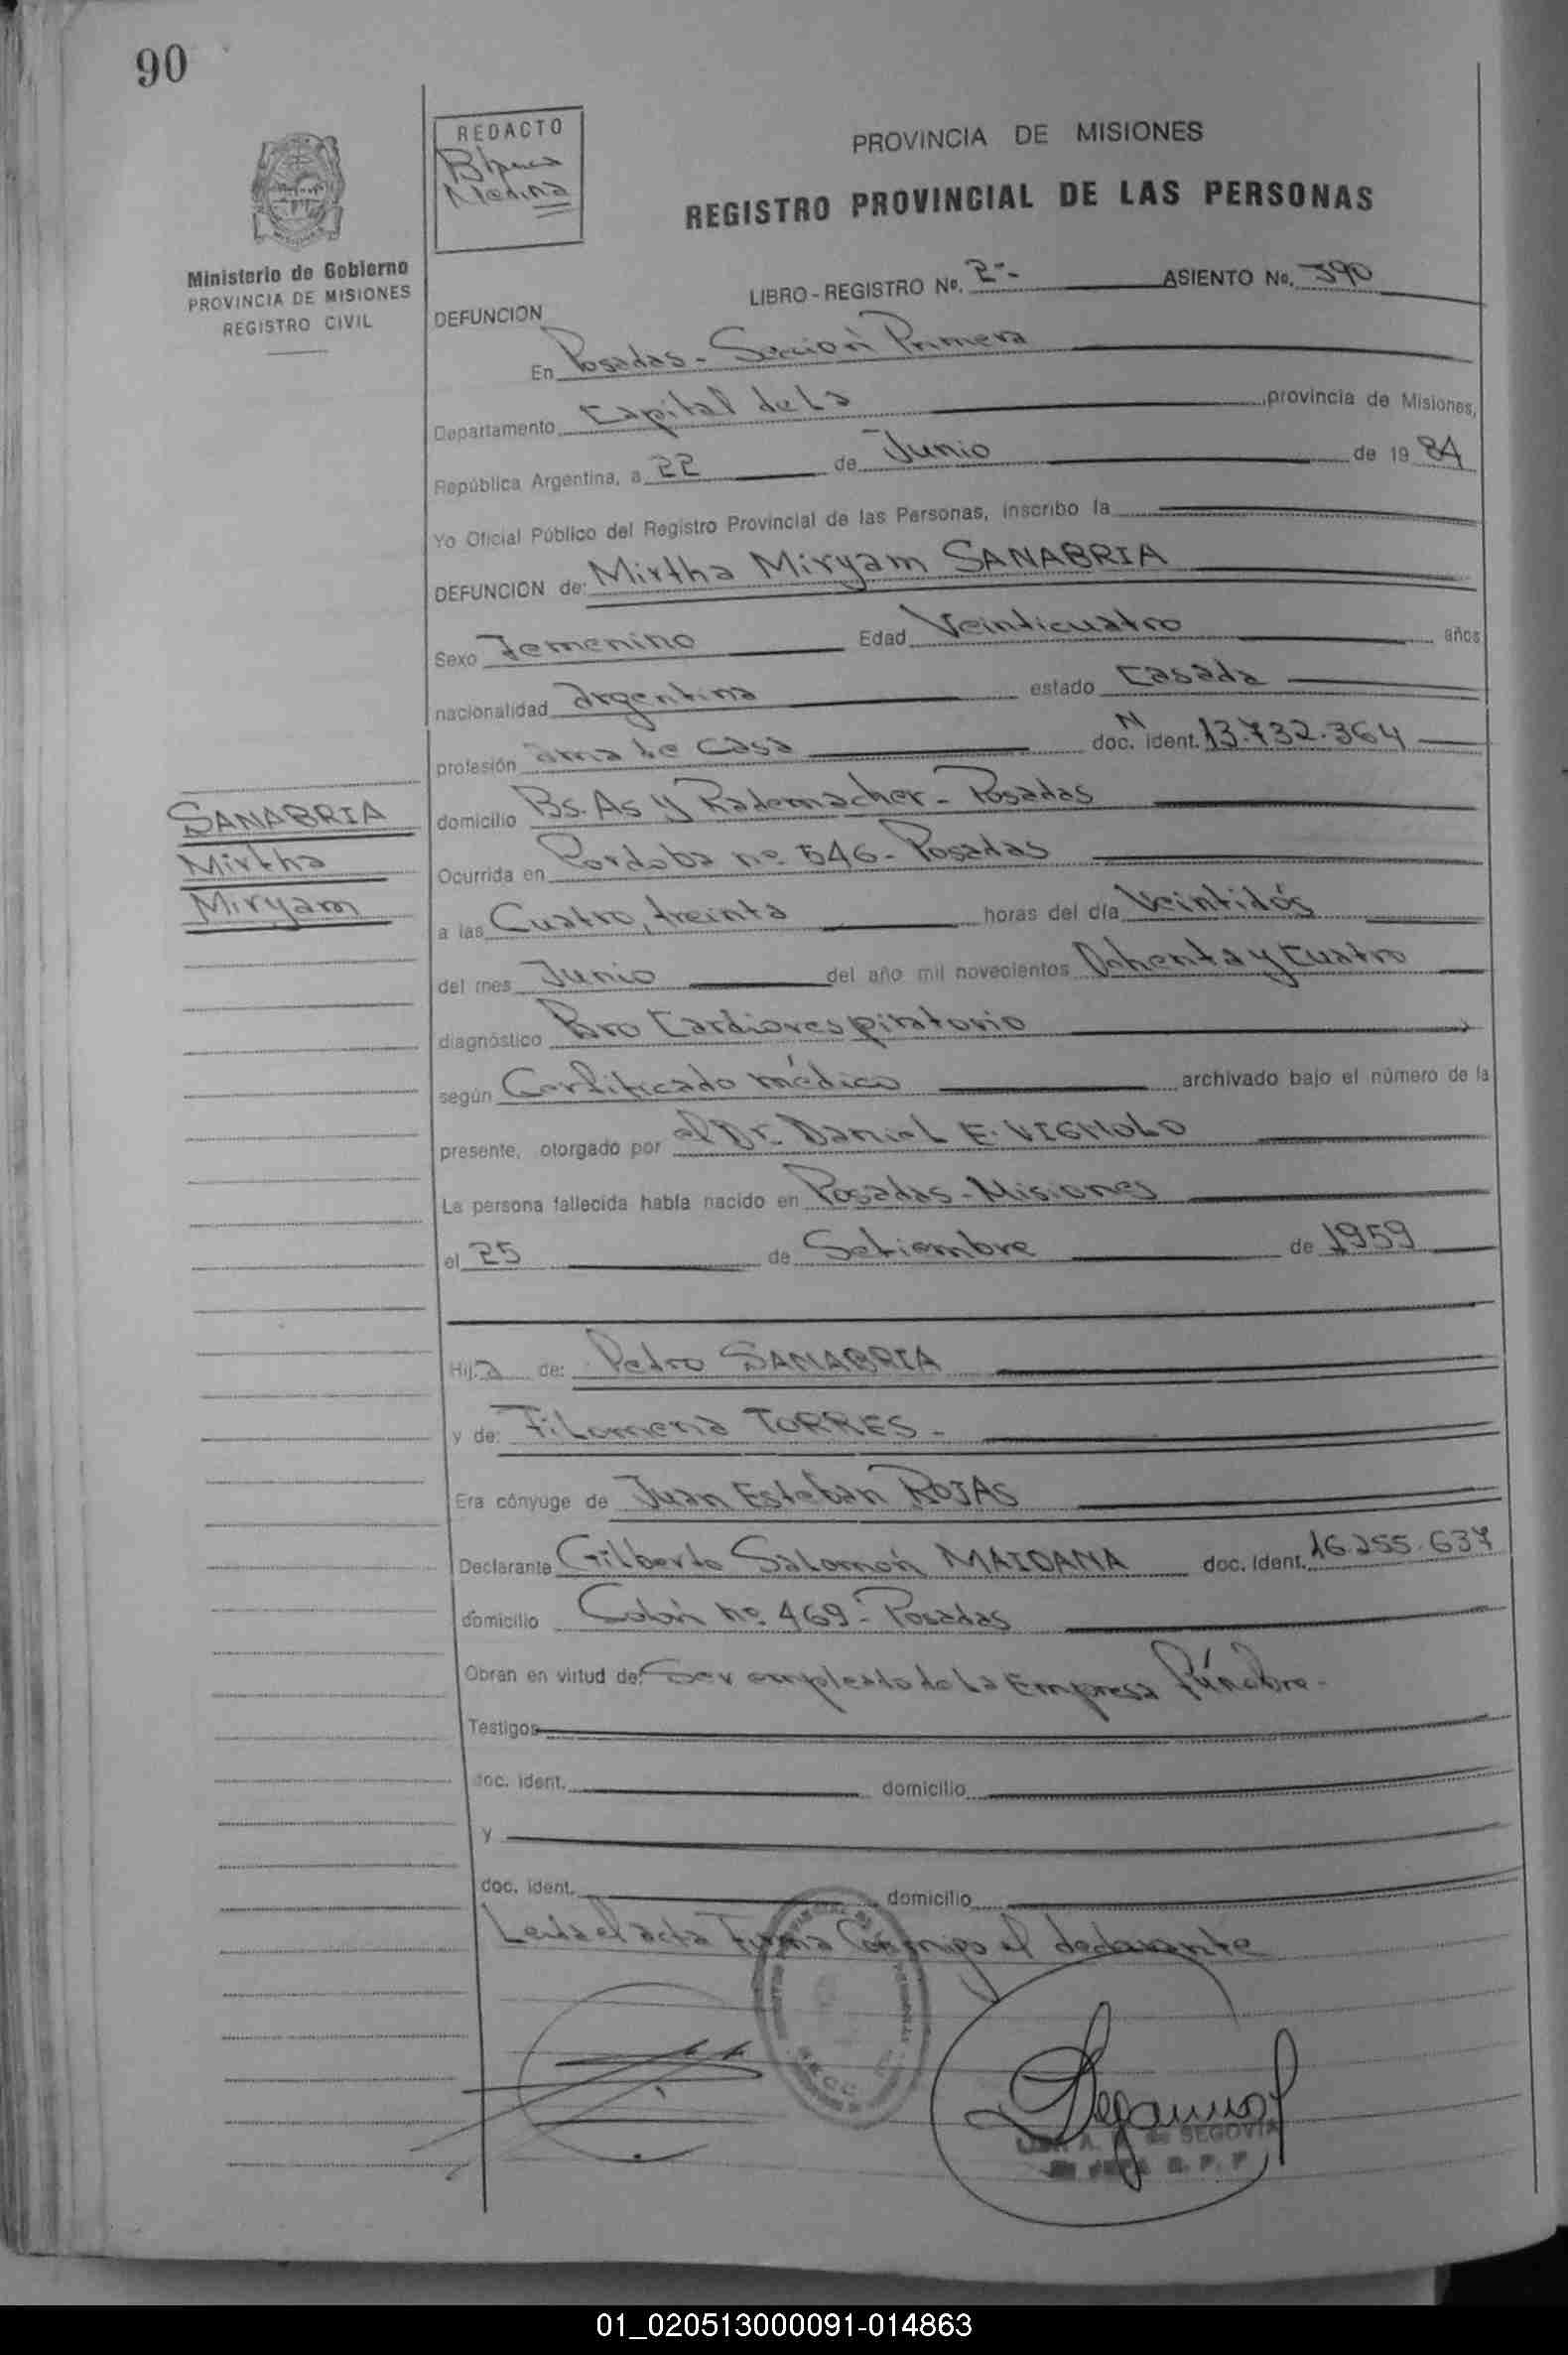 90
REDACTO
Blanca
Medina
PROVINCIA DE MISIONES
REGISTRO PROVINCIAL DE LAS PERSONAS
Ministerio de Gobierno
PROVINCIA DE MISIONES
REGISTRO CIVIL
LIBRO-REGISTRO Nº. 2-- ASIENTO No. 390
DEFUNCION
En Posadas - Sección Primera
Departamento Capital de la provincia de Misiones,
República Argentina, a 22 de Junio de 19 84
Yo Oficial Público del Registro Provincial de las Personas, inscribo la
DEFUNCION de: Mirtha Miryam SANABRIA
Sexo Femenino Edad Veinticuatro años
nacionalidad argentina estado casada
profesión ama de casa doc. N ident. 13.732.364
domicilio Bs. As y Rademacher - Posadas
SANABRIA
Mirtha
Miryam
Ocurrida en Cordoba nº 546 - Posadas
a las Cuatro, treinta horas del día Veintidós
del mes Junio del año mil novecientos Ochenta y cuatro
diagnóstico Paro Cardiorespiratorio
según Certificado médico archivado bajo el número de la
presente, otorgado por el Dr. Daniel E. VIGNOLO
La persona fallecida había nacido en Posadas - Misiones
el 25 de Setiembre de 1959
Hij a de: Pedro SANABRIA
y de: Filomena TORRES -
Era cónyuge de Juan Esteban ROJAS
Declarante Gilberto Salomón MAIDANA doc. ident. 16.255.637
domicilio Colón nº 469 - Posadas
Obran en virtud de: Ser empleado de la Empresa Fúnebre -
Testigos
doc. ident. domicilio
y
doc. ident. domicilio
Leida el acta Firma Conmigo el declarante
A. de SEGOVIA
01_020513000091-014863